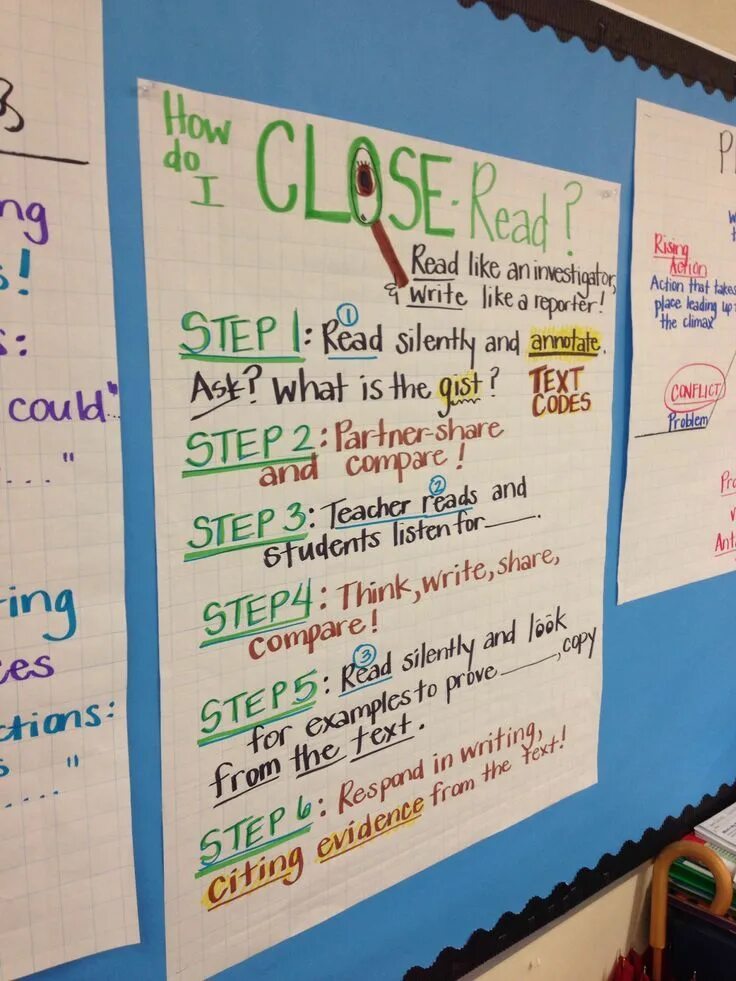 ng
s!
s:
could"
...."
ting
ces
ctions:
s
...."
How do I CLOSE-Read?
Read like an investigator,
& write like a reporter!
STEP 1: ① Read silently and annotate.
Ask? What is the gist? TEXT CODES
STEP 2: Partner-share
and compare!
STEP 3: Teacher ② reads and
students listen for ____.
STEP 4: Think, write, share,
compare!
STEP 5: ③ Read silently and look
for examples to prove ____, copy
from the text.
STEP 6: Respond in writing,
citing evidence from the text!
P
Rising
Action
Action that takes
place leading up
the climax
CONFLICT
Problem
Pro
Ant